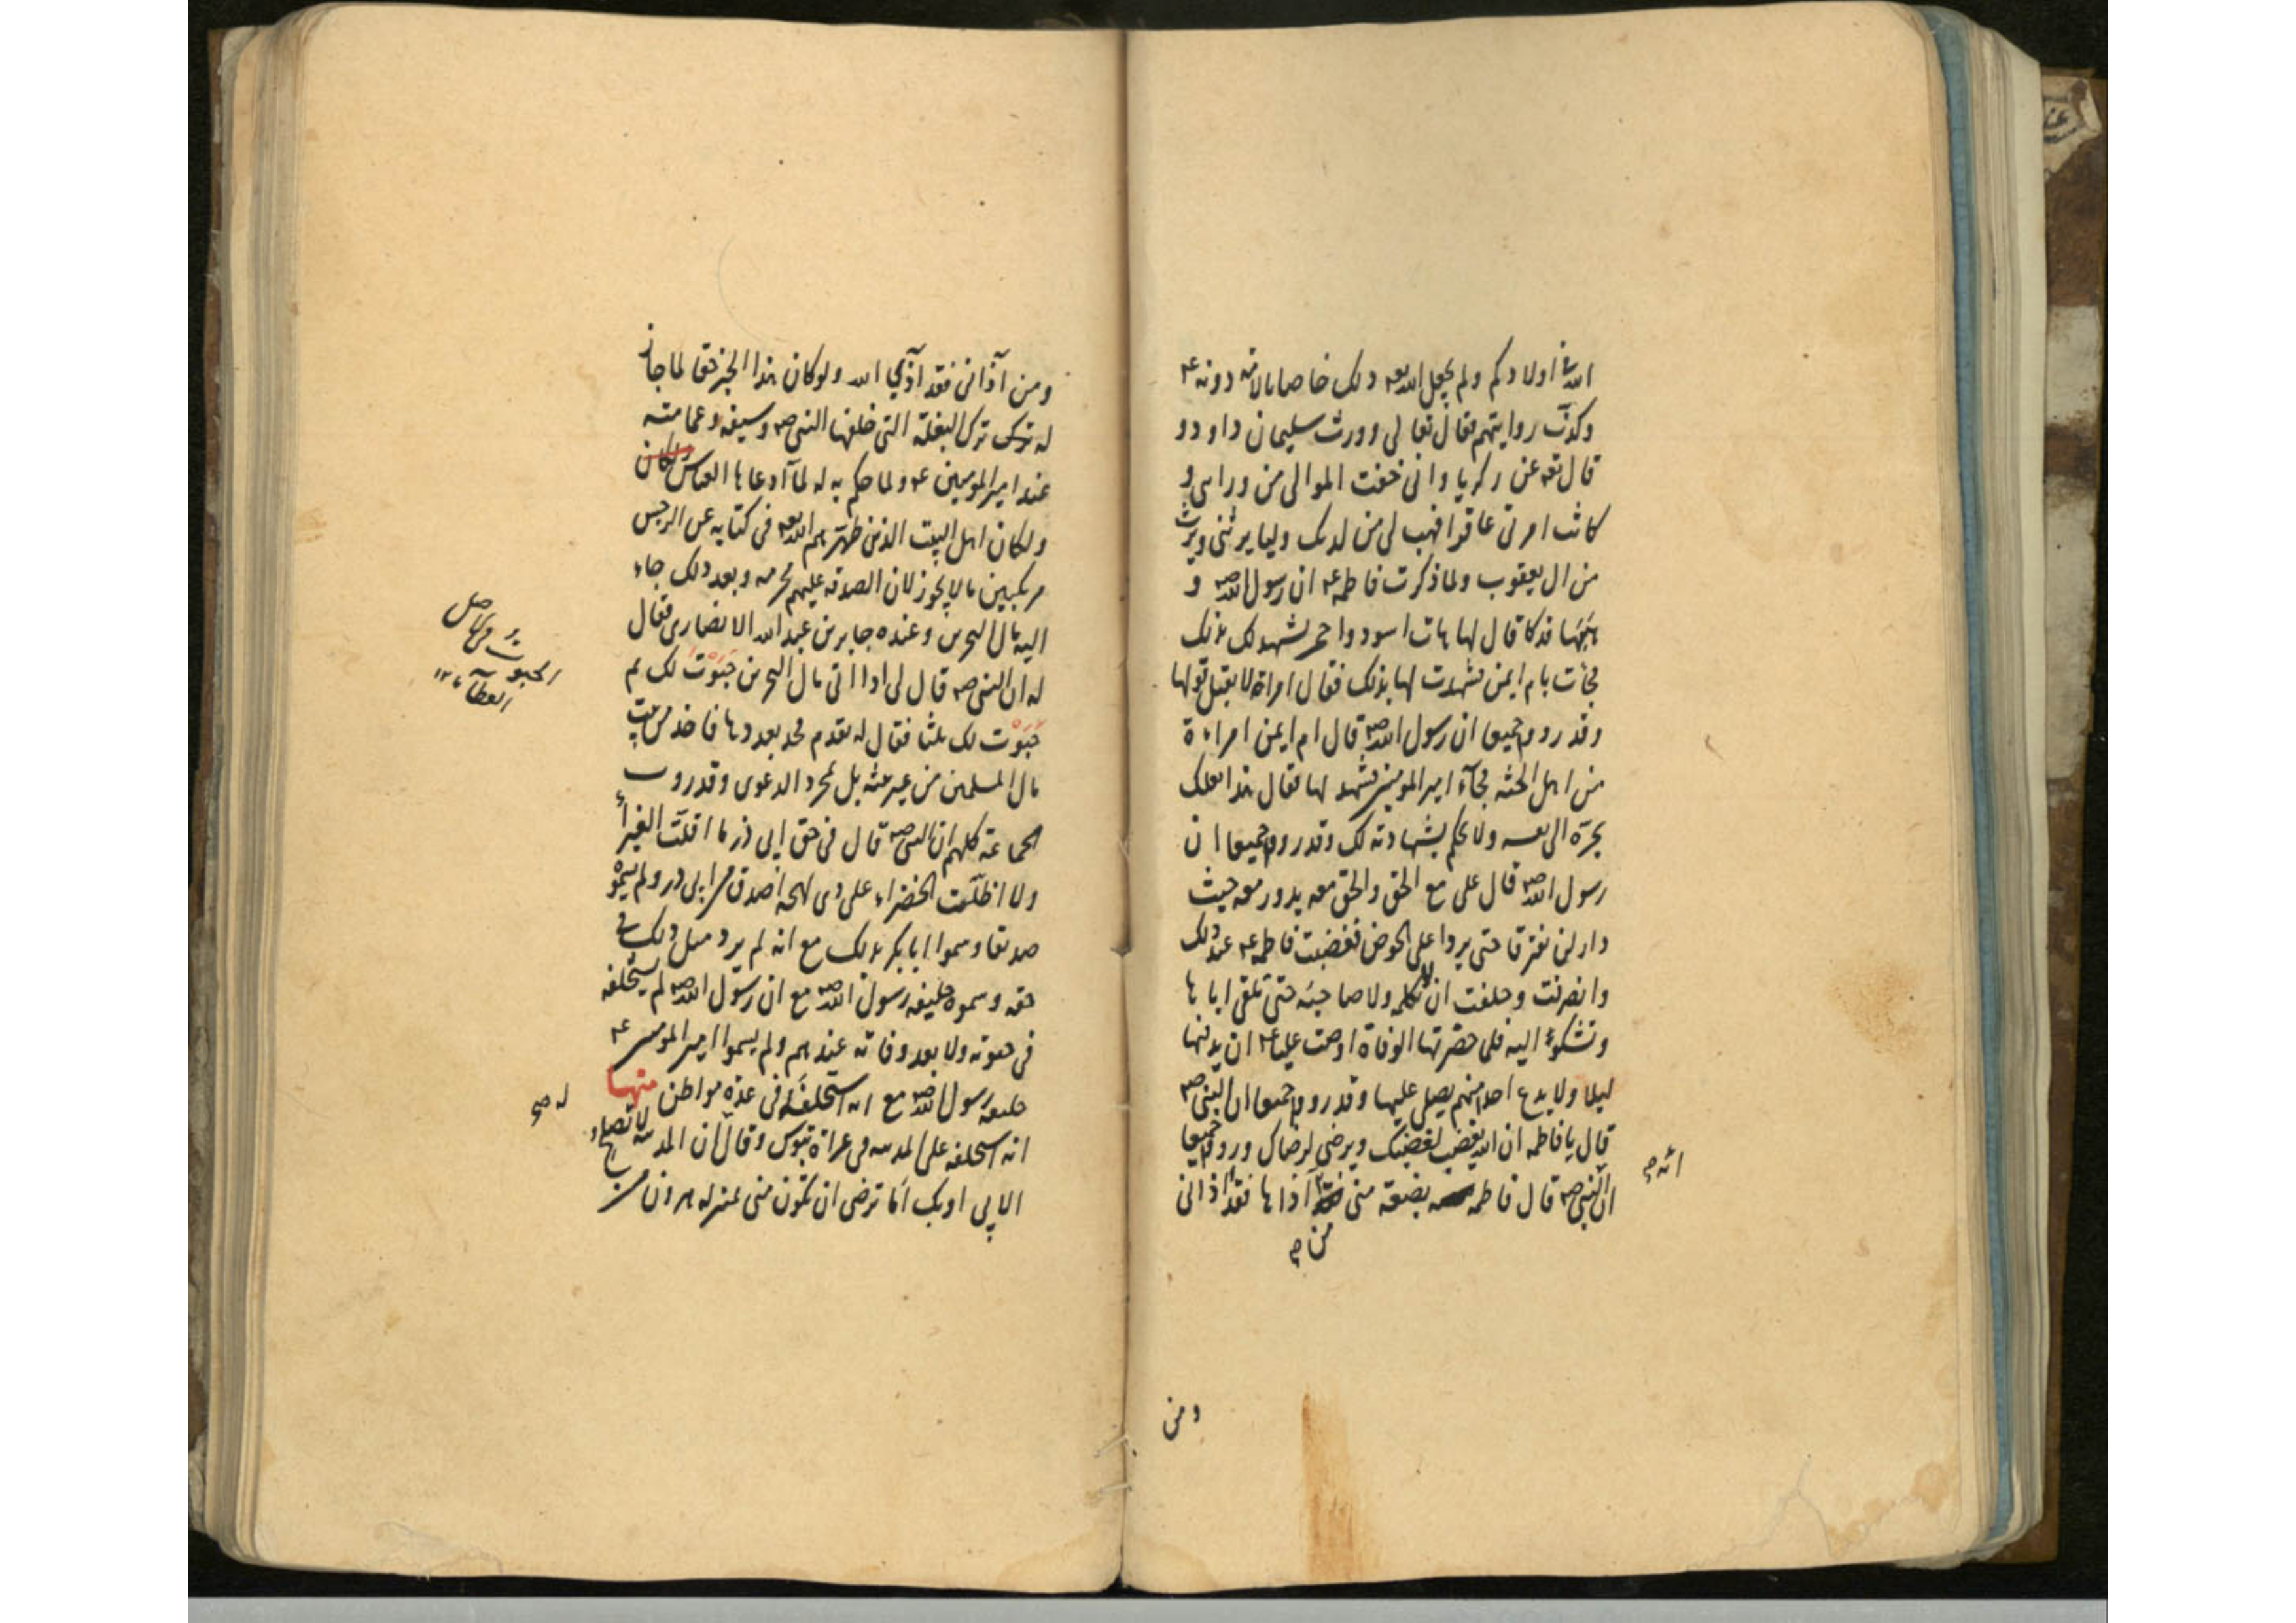 الله فى اولادكم ولم يجعل الله تعه ذلك خاصا بالامة دونه عم
وكذّب روايتهم فقال تعالى وورث سليمان داود و
قال تعه عن زكريا وانى خفت الموالى من وراىى و
كانت امرتى عاقرا فهب لى من لدنك وليا يرثنى ويرث
من ال يعقوب ولما ذكرت فاطمه عم ان رسول الله صم و
هَبَهَا فدكا قال لها هات اسود واحمر يشهد لك بذلك
فجأت بام ايمن فشهدت لها بذلك فقال امراة لا يقبل قولها
وقد رووا جميعا ان رسول الله صم قال ام ايمن امراءة
من اهل الجنه فجآء امير المومنين فشهد لها فقال هذا بعلك
يجرّه الى نفسه ولا نحكم بشهادته لك وقد رووا جميعا ان
رسول الله صم قال على مع الحق والحق معه يدور معه حيث
دار لن يفترقا حتى يردا على الحوض فغضبت فاطمه عم عند ذلك
وانصرفت وحلفت ان لا تكلمه ولا صاحبَه حتى تلقى اباها
وتشكوا اليه فلى حضرتها الوفاة اوصت عليا عم ان يدفنها
ليلا ولا يدع احدا منهم يصلى عليها وقد رووا جميعا ان النبى صم
قال يا فاطمه ان الله يغضب لغضبك ويرضى لرضاك ورووا جميعا
انه صح
ان النبى صم قال فاطمه بضعة منى آذاها فقد اذانى
من صح
ومن
ومن آذانى فقد آذى الله ولو كان هذا الخبر حقا لما جاز
له ترك البغلة التى خلفها النبى صم وسيفه وعمامته
عند امير المومنين عم ولما حكم به له لمآ ادعاها العباس ولكان
ولكان اهل البيت الذين طهّرهم الله تعه فى كتابه عن الرجس
مرتكبين ما لا يجوز لان الصدقه عليهم محرمه وبعد ذلك جاء
اليه مال البحرين وعنده جابر بن عبد الله الانصارى فقال
له ان النبى صم قال لى اذا اتى مال البحرين حَبَوْت لك ثم
حَبَوْت لك ثلثا فقال له تقدم فخذ بعددها فاخذ من بيت
مال المسلمين من غير بينه بل لمجرد الدعوى وقد روت
الجماعة كلهم ان النبى صم قال فى حق ابى ذر ما اقلّت الغبرأ
ولا اظلّت الخضراء على ذى لهجه اصدق من ابى ذر ولم يسمّوْ
صديقا وسموا ابا بكر بذلك مع انه لم يرد مثل ذلك فى
حقه وسموه خليفه رسول الله صم مع ان رسول الله صم لم يستخلفه
فى حيوته ولا بعد وفاته عندهم ولم يسموا امير المومنين عم
خليفه رسول الله صم مع انه استخلفه فى عدّة مواطن منها
انه استخلفه على المدينه فى غزاة تبوك وقال ان المدينه لا تصلح
الا بى او بك اما ترضى ان تكون منى بمنزله هرون من
الحبوت
العطآء ١٢
له صح